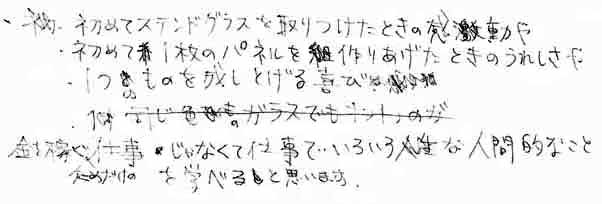 ・初めてステンドグラスを取りつけたときの感激動や
・初めて1枚のパネルを作りあげたときのうれしさや
・1つのものを成しとげる喜び
・同じ色のガラスでも
金を稼ぐ仕事じゃなくて仕事で‥いろいろな人間的なこと
ためだけの を学べると思います。